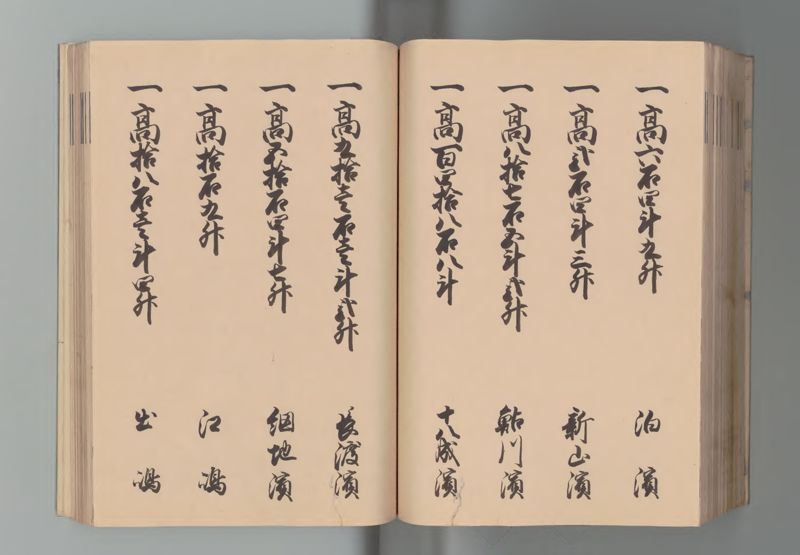 一高六石四斗九升 泊濱
一高弐石四斗三升 新山濱
一高八拾七石五斗弐升 鮎川濱
一高百四拾八石八斗 十八成濱
一高九拾壱石壱斗弐升 長渡濱
一高五拾石四斗七升 網地濱
一高拾石九升 江嶋
一高拾八石壱斗四升 出嶋